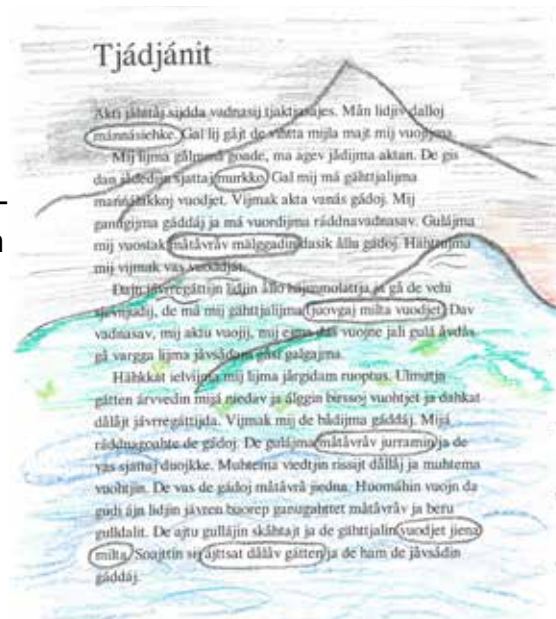 Tjádjánit
Akti jåhttåj sijdda vadnasij tjaktjasajes. Mån lidjiv dalloj
mánnásiehke. Gal lij gåjt de vihtta mijla majt mij vuojijma.
Mij lijma gålmmå goade, ma agev jådijma aktan. De gis
dan jådedijn sjattaj murkko. Gal mij má gähttjalijma
mannålakkoj vuodjet. Vijmak akta vanás gádoj. Mij
gandgijma gáddáj ja má vuordijma ráddnavadnasav. Gulájma
mij vuostak måtåvråv målggadin dasik ållu gádoj. Hähttujma
mij vijmak vas vuodjåt.
jávrregáttijn lidjin ållo ja gå de vehi
de má mij gähttjalijma tjuovgaj milta vuodjet. Dav
vadnasav, mij aktu vuojij, mij ejma das vuojne jali gulá åvdås
gå vargga lijma jávsådam gåsi galgajma.
Hähkkat ielvijma mij lijma jårgidam ruoptus. Ulmutja
gátten árvvedin mijá niedav ja álggin birssoj vuohtjet ja dahkat
dålåjt jávrregáttijda. Vijmak mij de bådijma gáddáj. Mijá
ráddnagoahte de gádoj. De gulájma måtåvråv jurramin ja de
vas sjattaj duojkke. Muhtema viedtjin rissijt dållåj ja muhtema
vuohtjin. De vas de gádoj måtåvrå jiedna. Huomáhin vuojn da
gudi ájn lidjin jávren buorep ganugahttet måtåvråv ja beru
gulldalit. De ajtu gullájin skåhtajt ja de gähttjalin vuodjet jiena
milta. Soajttin sij ájttsat dålåv gátten ja de ham de jåvsådin
gáddáj.